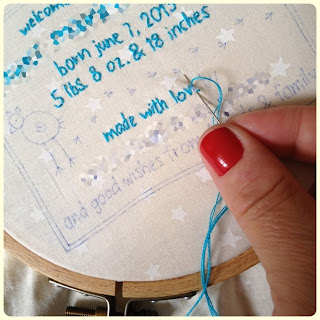 welcome
born june 7, 2013
5 lbs. 8 oz. & 18 inches
made with lov
& family
and good wishes from